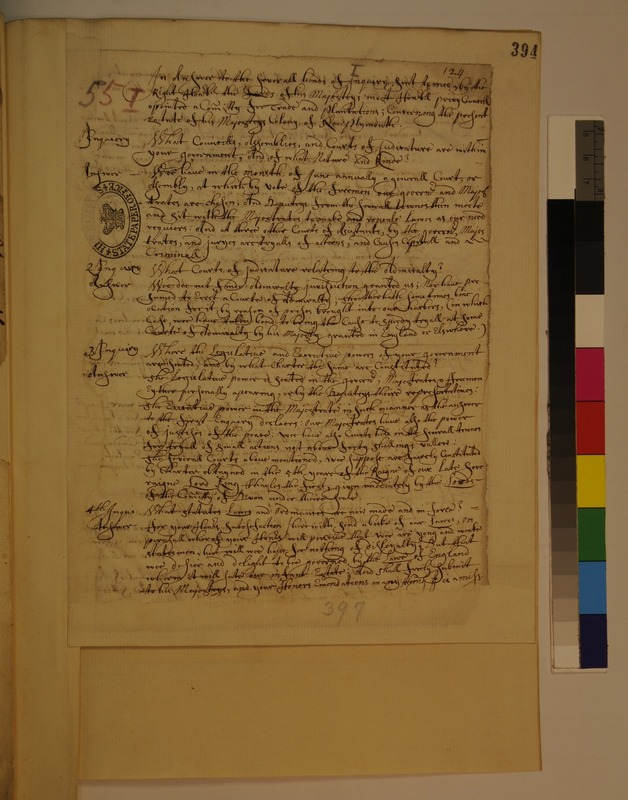 394
I
124
55 I
An Answer to the severall heads of Inquiry sent to mee, by the
Right Honble the Lords of his Majestyes most Honble privy Councill
apointed a Comitty for Trade and plantations; Concerning the present
estate of his Majestyes Colony of New Plymouth.
Inquiery What Councells, assemblies, and Courts of Judicature are within
your government, and of what Nature and Kinde?
Answer Wee have in the moneth of June annually a generall Court, or
Assembly, at which by vote of the freemen one governr and Majes
trates are chosen; And Deputyes from the severall townes then meete
and sitt with the Majestrates to make and repeale Lawes as occation
requires: And at three other Courts of Assistants, by the governr, Majes
trates, and juryes are tryalls of actions, and Causes Capitall and
Criminall
STATE PAPER OFFICE
2 Inquiery What Courts of judicature relateing to the Admiralty?
Answer Wee doe not find Admiralty jurisdiction granted us; Nor have pre
sumed to Erect a Courte of Admiralty;
by reason of prizes brought into our harbors, (in which
Case, wee have taken bond to bring the Case to Speedy tryall att some
Courte of Admiralty by his Majesty granted in England or Elsewhere.)
3 Inquiry Where the Legislative and Executive powers of your government
are seated; and by what Charter the same are Constituted?
Answer The Legislative power is seated in the governr, Majestrates & freemen
Eyther personally apeering, or by the Deputyes theire representatives:
The Executive power in the Majestrates in such manner as the answer
to the first Enquiry declares: Our Majestrates have also the power
of Justices of the peace: We have also Courts in the severall townes
for tryall of small actions not above forty shillings vallue:
The severall Courts above mentioned, wee suppose are sorely Constituted
by Charter obtayned in the 5th yeare of the Raigne of our late Sove
raigne Lord King Charles the first, given imediately by the
of the Councill of Devon under theire seale.
4th Inqui What statutes Lawes and Ordinances are now made and in force?
Answer For your Honrs satisfaction heerwith, send a booke of our Lawes; on
perusall wherof your Honrs will perceive that wee are yong and weake
statesmen; but yett wee hope, see nothing of disloyalty; But that
wee desire and delight to be governed by the Lawes of England
wherin it will sute our infant Estate; And shall freely submitt
to his Majestyes, and your Honors Emendations in any thing amiss
397